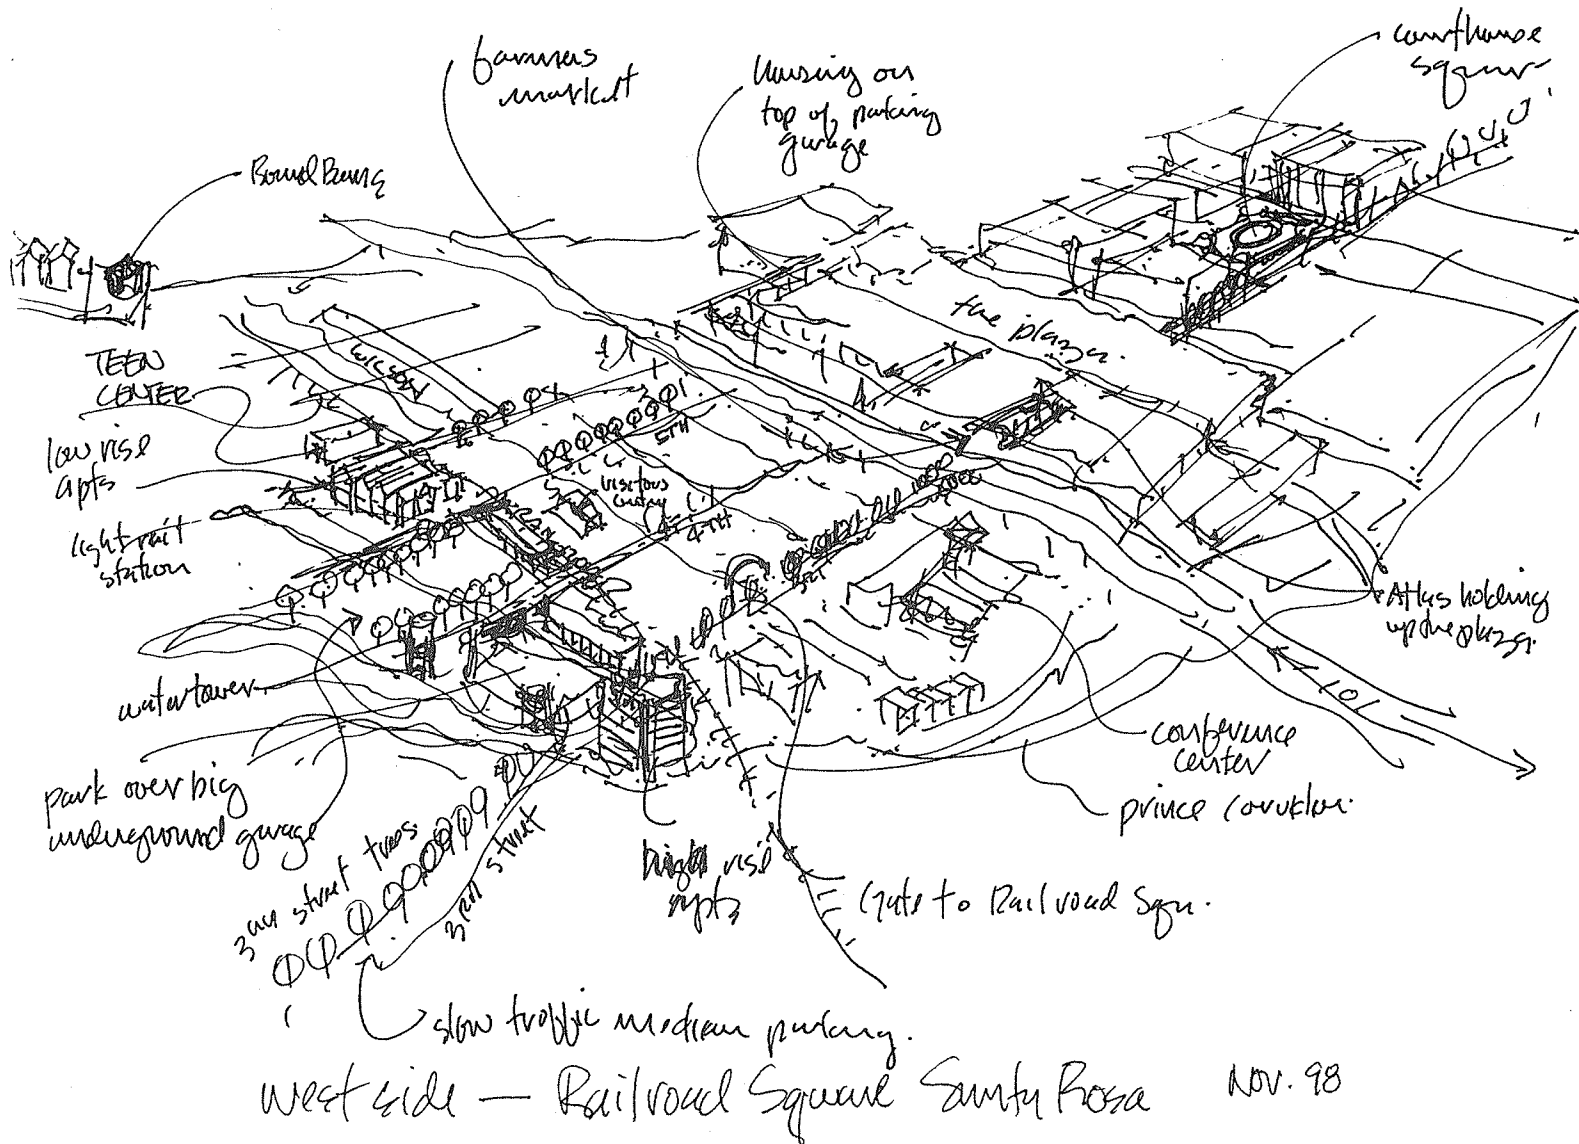 farmers
market
Housing on
top of parking
garage
courthouse
square
Round Barn
TEEN
CENTER
WILSON
the plaza.
low rise
apts
5TH
visitors
4TH
light rail
station
Atlas holding
up the plaza.
watertower
101
conference
center
park over big
underground garage
prince
3RD street trees
3RD street
high rise
apts
Gate to Railroad Squ.
slow traffic median parking.
west side — Railroad Square Santa Rosa Nov. 98